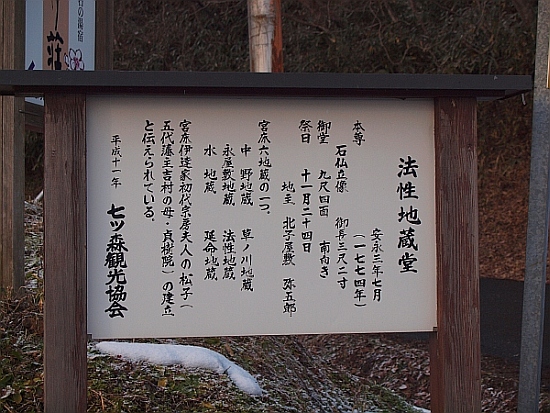 法性地蔵堂
安永三年七月
(一七七四年)
本尊 石仏立像 御丈三尺二寸
御堂 九尺四面 南向き
祭日 十一月二十四日
地主 北子屋敷 弥五郎
宮床六地蔵の一つ。
中野地蔵 草ノ川地蔵
永屋敷地蔵 法性地蔵
水地蔵 延命地蔵
宮床伊達家初代宗房夫人の松子(
五代藩主吉村の母・貞樹院)の建立
と伝えられている。
平成十一年
七ツ森観光協会
の湯宿
荘